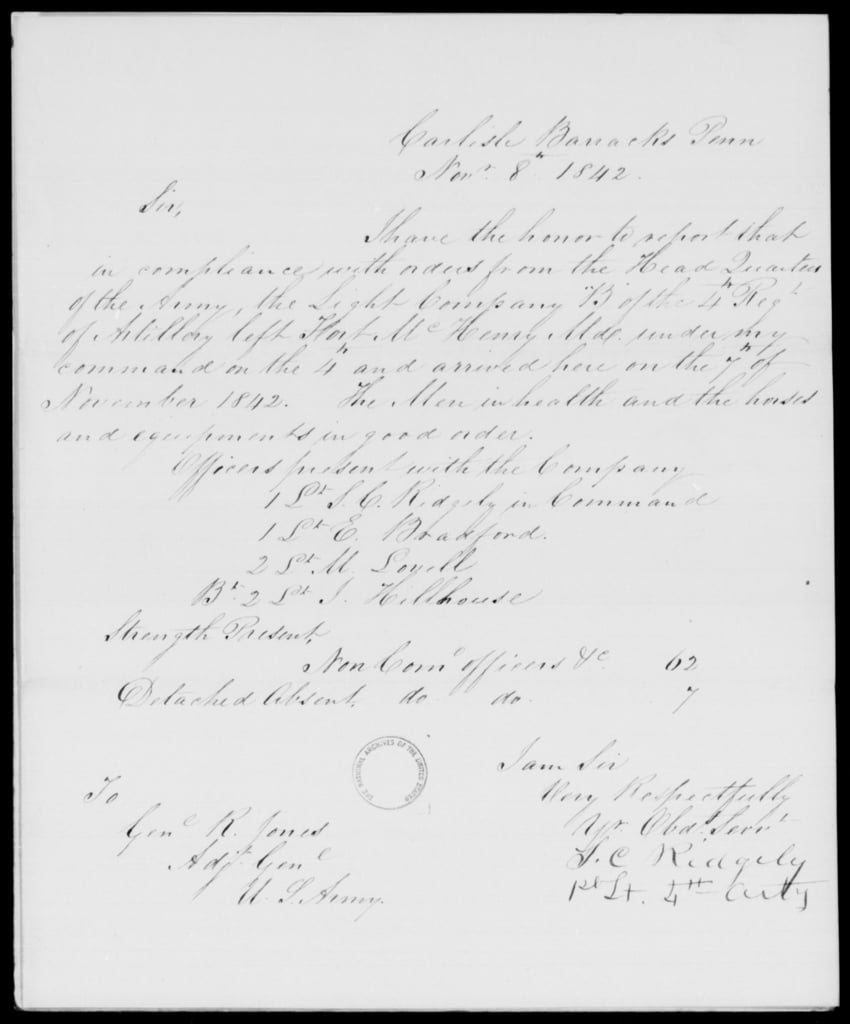 Carlisle Barracks Penn
Novr. 8th 1842.
Sir,
I have the honor to report that
in compliance with orders from the Head Quarters
of the Army, the Light Company "B" of the 4th Regt
of Artillery left Fort McHenry Md. under my
command on the 4th and arrived here on the 7th of
November 1842. The Men in health and the horses
and equipments in good order.
Officers present with the Company
1 Lt S. C. Ridgely in Command
1 Lt E. Bradford.
2 Lt M. Lovell
Bt. 2 Lt J. Hillhouse
Strength Present,
Non Comd officers &c. 62
Detached Absent, do do 7
THE NATIONAL ARCHIVES OF THE UNITED STATES
I am Sir
Very Respectfully
Yr. Obdt. Servt
S. C Ridgely
1st Lt. 4th Arty
To
Genl R. Jones
Adjt. Genl
U. S. Army.